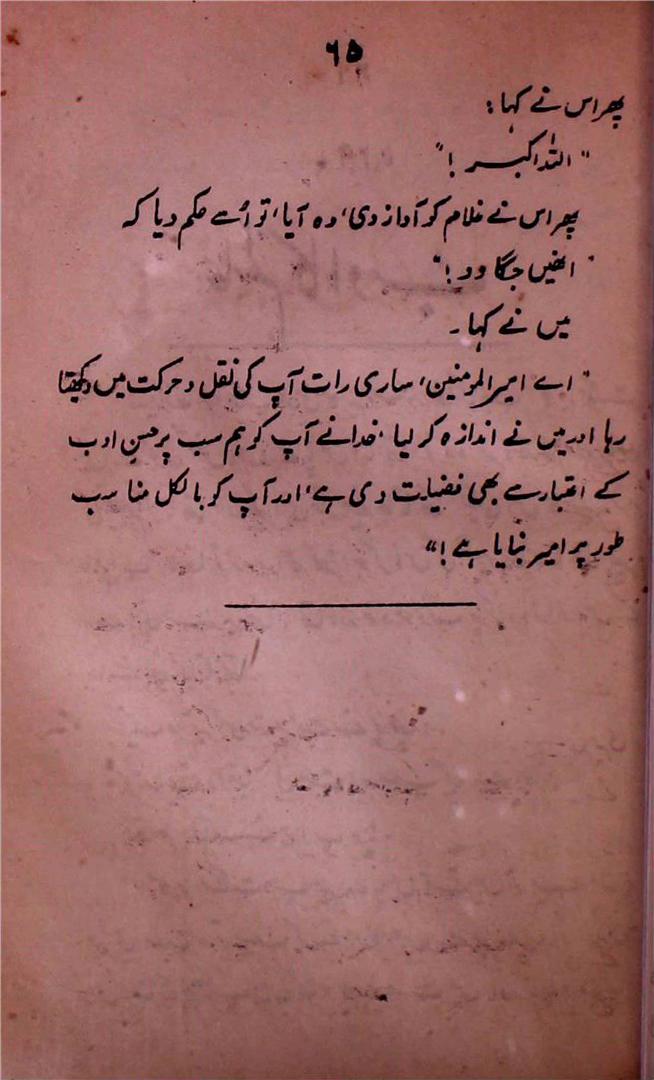 ۶۵
پھر اس نے کہا :
" اللہ اکبر ! "
پھر اس نے غلام کو آواز دی، وہ آیا، تو اُسے حکم دیا کہ
" انھیں جگا دو ! "
میں نے کہا ۔
" اے امیر المومنین، ساری رات آپ کی نقل و حرکت میں دیکھتا
رہا اور میں نے اندازہ کر لیا، خدا نے آپ کو ہم سب پر حسنِ ادب
کے اعتبار سے بھی فضیلت دی ہے، اور آپ کو بالکل مناسب
طور پر امیر بنایا ہے ! "